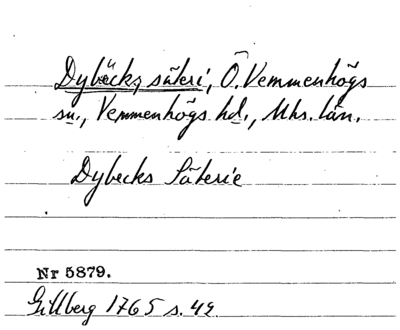 Dybäcks säteri, Ö. Vemmenhögs
sn., Vemmenhögs hd., Mhs. län.
Dybecks Säterie
Nr 5879.
Gillberg 1765 s. 49.